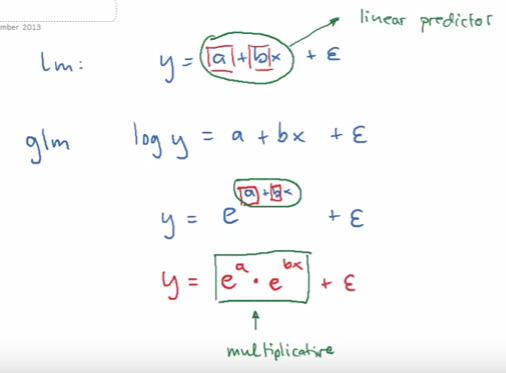 mber 2013
linear predictor
lm: y = a + bx + ε
glm log y = a + bx + ε
y = e^{a + bx} + ε
y = e^a · e^{bx} + ε
multiplicative